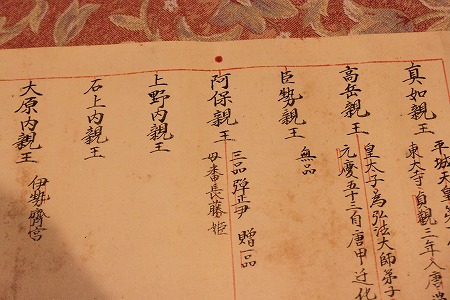 真如親王
平城天皇第
東大寺貞觀三年入唐
高岳親王
皇太子為弘法大師弟子
元慶五十三自唐申迁化
臣勢親王
無品
阿保親王
三品彈正尹贈一品
母番長藤姫
上野内親王
石上内親王
大原内親王
伊勢齊宮